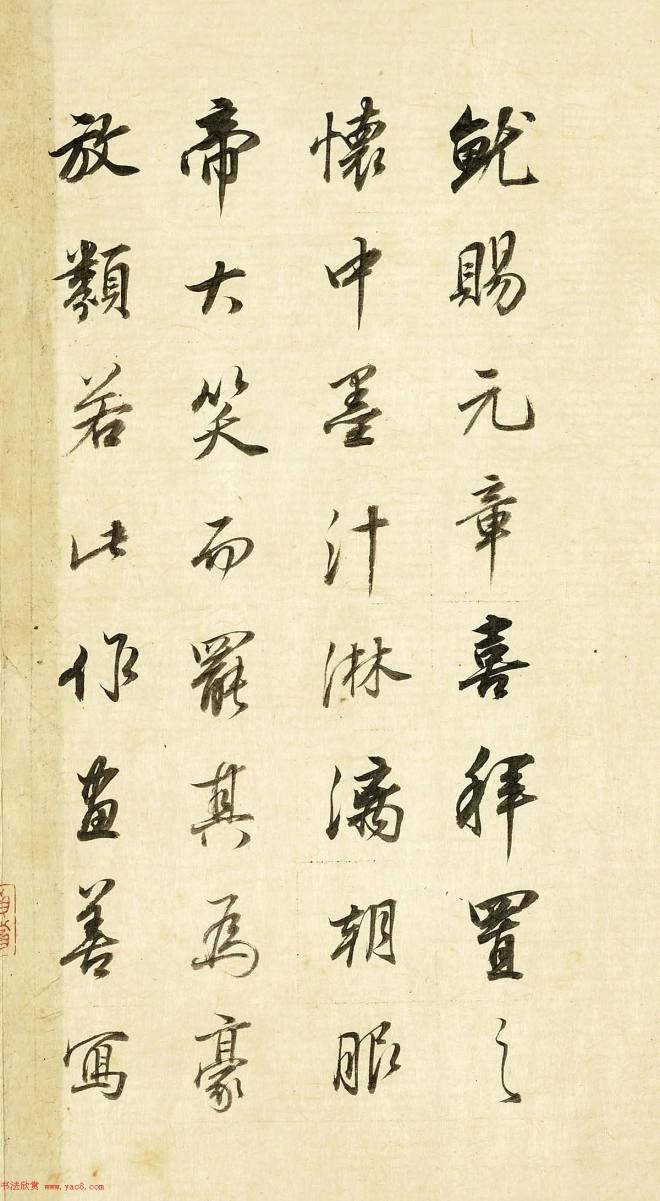 賜元章喜拜置之
懷中墨汁淋漓朝服
帝大笑而罷其為豪
放類若此作畫善寫
书法欣赏 www.yac8.com